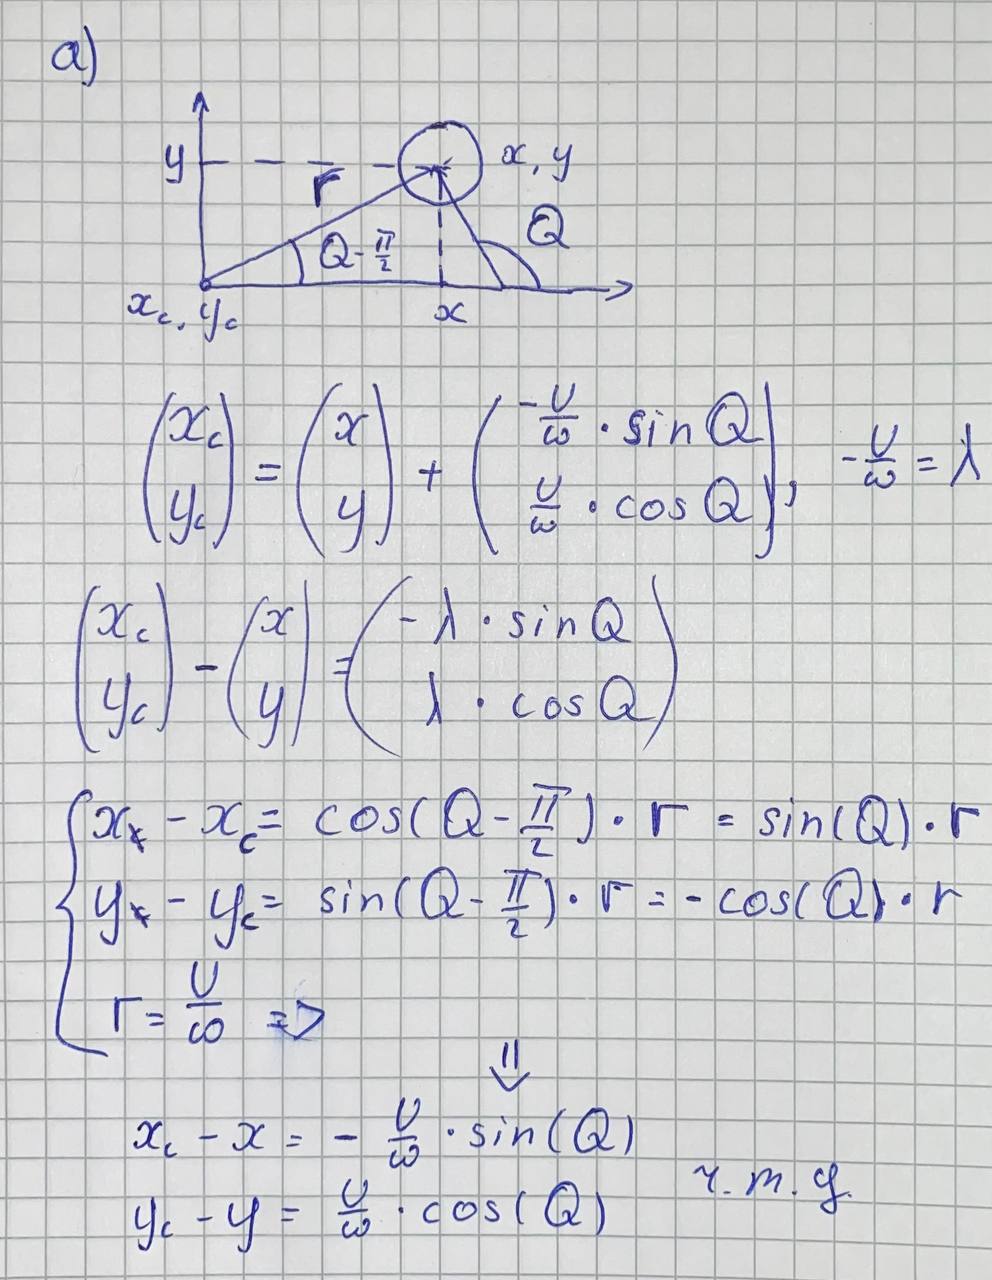 a)
y
r
x, y
Q - π/2
Q
x_c, y_c
x
(x_c y_c) = (x y) + (-υ/ω · sin Q υ/ω · cos Q), -υ/ω = λ
(x_c y_c) - (x y) = (-λ · sin Q λ · cos Q)
x_* - x_c = cos(Q - π/2) · r = sin(Q) · r
y_* - y_c = sin(Q - π/2) · r = - cos(Q) · r
r = υ/ω =>
⇓
x_c - x = - υ/ω · sin(Q)
y_c - y = υ/ω · cos(Q)
ч.т.д.